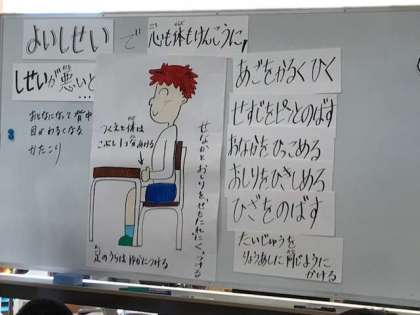 よいしせい で 心も体もけんこうに!
しせいが悪いと…
おとなになって背中
目がわるくなる
かたこり
つくえと体は
こぶし1つ分あける
せなかとおしりを、せもたれにくっつける
足のうらはゆかにつける
あごをかるくひく
せすじをピッとのばす
おなかをひっこめる
おしりをひきしめる
ひざをのばす
たいじゅうを
りょうあしに同じように
かける